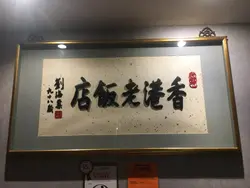 香港老飯店
劉海粟
九十八歲